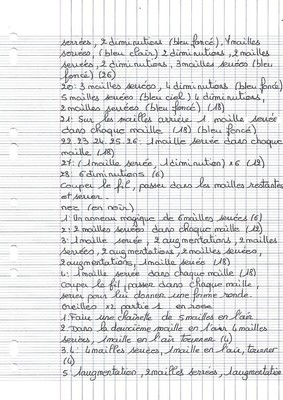 serrées, 2 diminutions (bleu foncé), 4 mailles
serrées, (bleu clair) 2 diminutions, 2 mailles
serrées, 2 diminutions, 3 mailles serrées (bleu
foncé) (26)
20: 3 mailles serrées, 4 diminutions (bleu foncé)
5 mailles serrées (bleu ciel) 4 diminutions,
2 mailles serrées (bleu foncé) (18)
21: Sur les mailles arrière 1 maille serrée
dans chaque maille (18) (bleu foncé)
22. 23. 24. 25. 26: 1 maille serrée dans chaque
maille (18)
27: (1 maille serrée, 1 diminution) x 6 (12)
28: 6 diminutions (6)
Couper le fil, passer dans les mailles restantes
et serrer.
nez (en noir)
1: Un anneau magique de 6 mailles serrées (6)
2: 2 mailles serrées dans chaque maille (12)
3: 1 maille serrée, 2 augmentations, 2 mailles
serrées, 2 augmentations, 2 mailles serrées,
2 augmentations, 1 maille serrée (18)
4: 1 maille serrée dans chaque maille (18)
Couper le fil, passer dans chaque maille,
serrer pour lui donner une forme ronde.
oreilles x2 partie 1 en rose
1. Faire une chaînette de 5 mailles en l'air
2. Dans la deuxième maille en l'air 4 mailles
serrées, 1 maille en l'air tourner (4)
3. 4: 4 mailles serrées, 1 maille en l'air, tourner
(4)
5: 1 augmentation, 2 mailles serrées, 1 augmentation